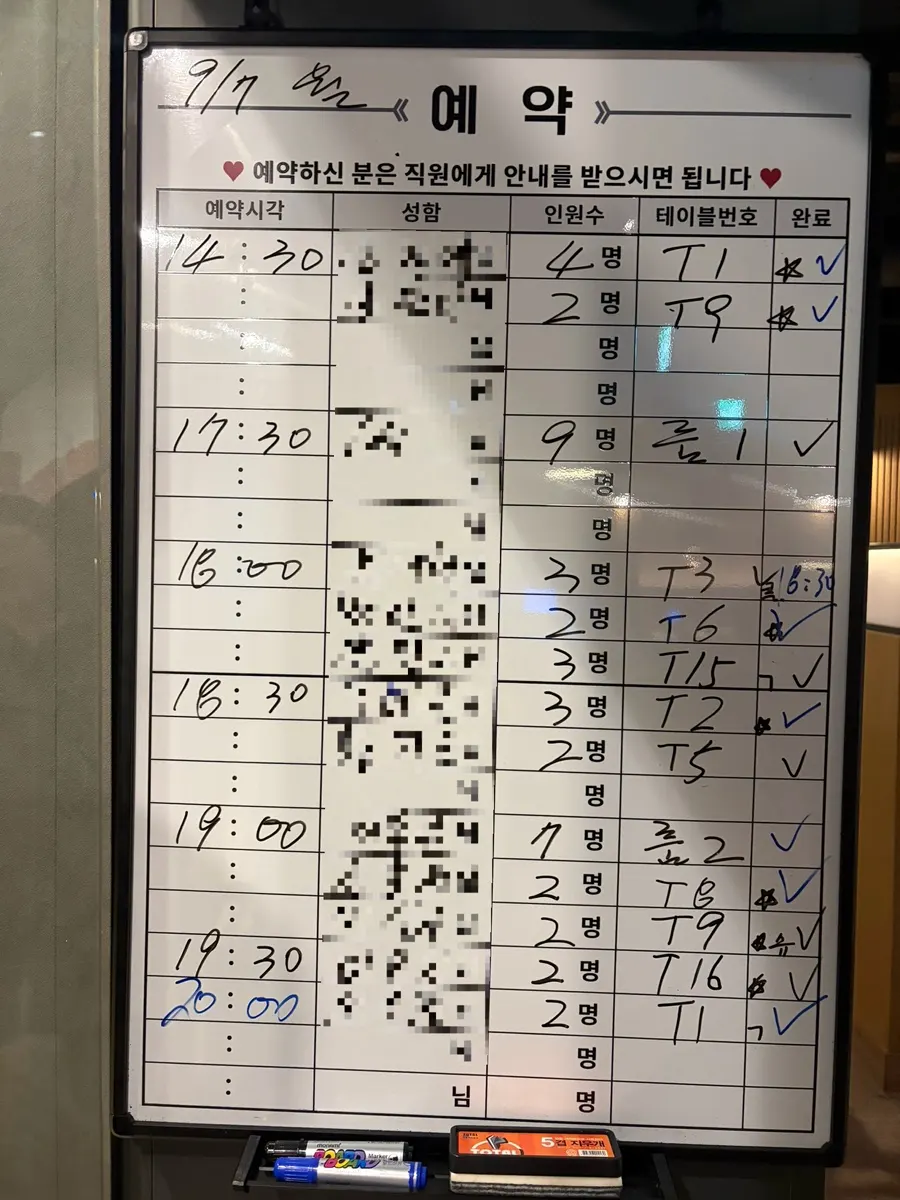 9/7 월
예 약
♥ 예약하신 분은 직원에게 안내를 받으시면 됩니다 ♥
예약시각 성함 인원수 테이블번호 완료
14:30 4명 T1 ☆ ✓
: 2명 T9 ☆ ✓
: 명
: 명
17:30 9명 룸1 ✓
: 명
: 명
18:00 3명 T3 18:30
: 2명 T6 ☆ ✓
: 3명 T15 ㄱ ✓
18:30 3명 T2 ☆ ✓
: 2명 T5 ✓
: 명
19:00 7명 룸2 ✓
: 2명 T8 ☆ ✓
: 2명 T9 ☆ 유 ✓
19:30 2명 T16 ☆ ✓
20:00 2명 T1 ㄱ ✓
: 명
: 님 명
monami
BOARD Marker
TOTAL
5겹 지우개